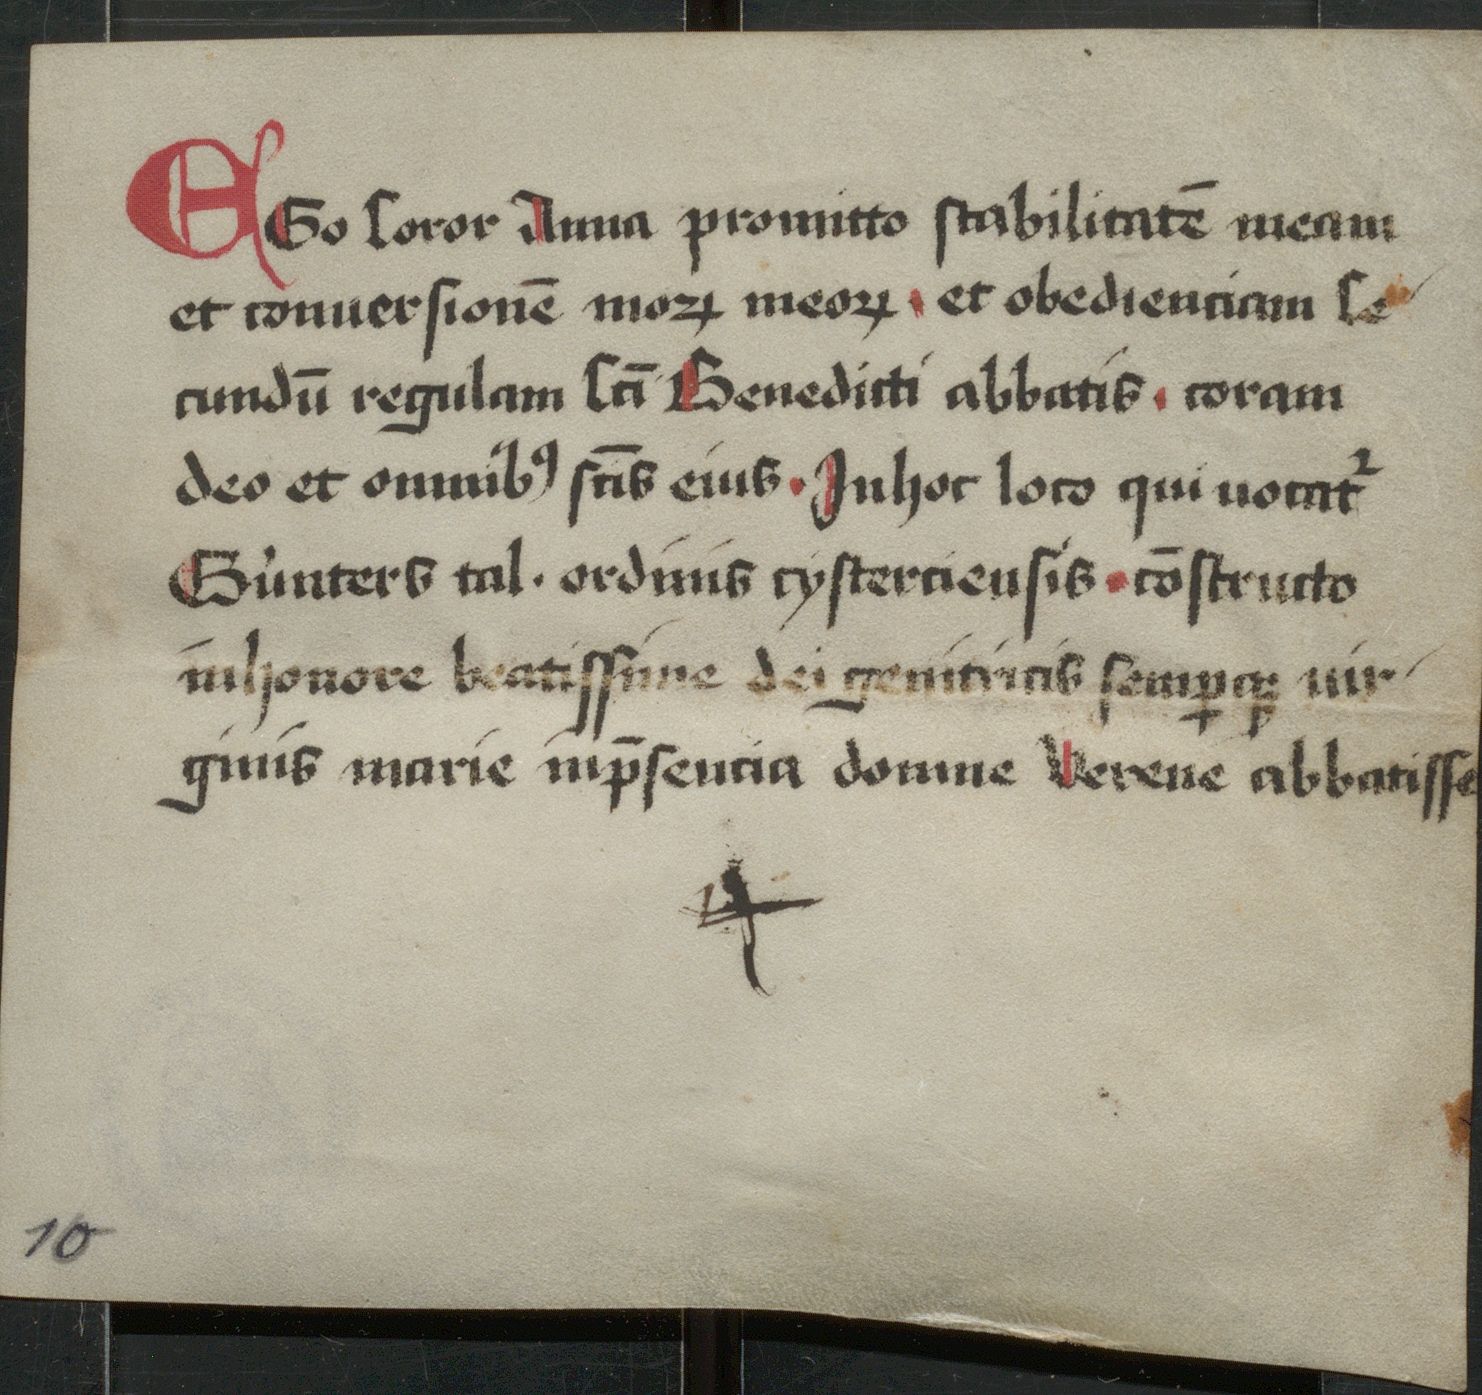 EGo soror Anna promitto stabilitatē meam
et conuersionē moꝝ meoꝝ · et obedienciam se
cundū regulam sct̄i Benedicti abbatis · coram
deo et omnibꝰ sct̄is eius · Inhoc loco qui uocat᷑
Gu̇nters tal · ordinis cysterciensis · cōstructo
inhonore beatissime dei genitricis semꝑqꝫ uir
ginis marie inp̄sencia domine Verene abbatisse
10